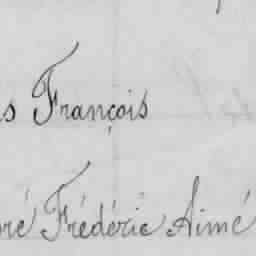 s François
ré Frédéric Aimé